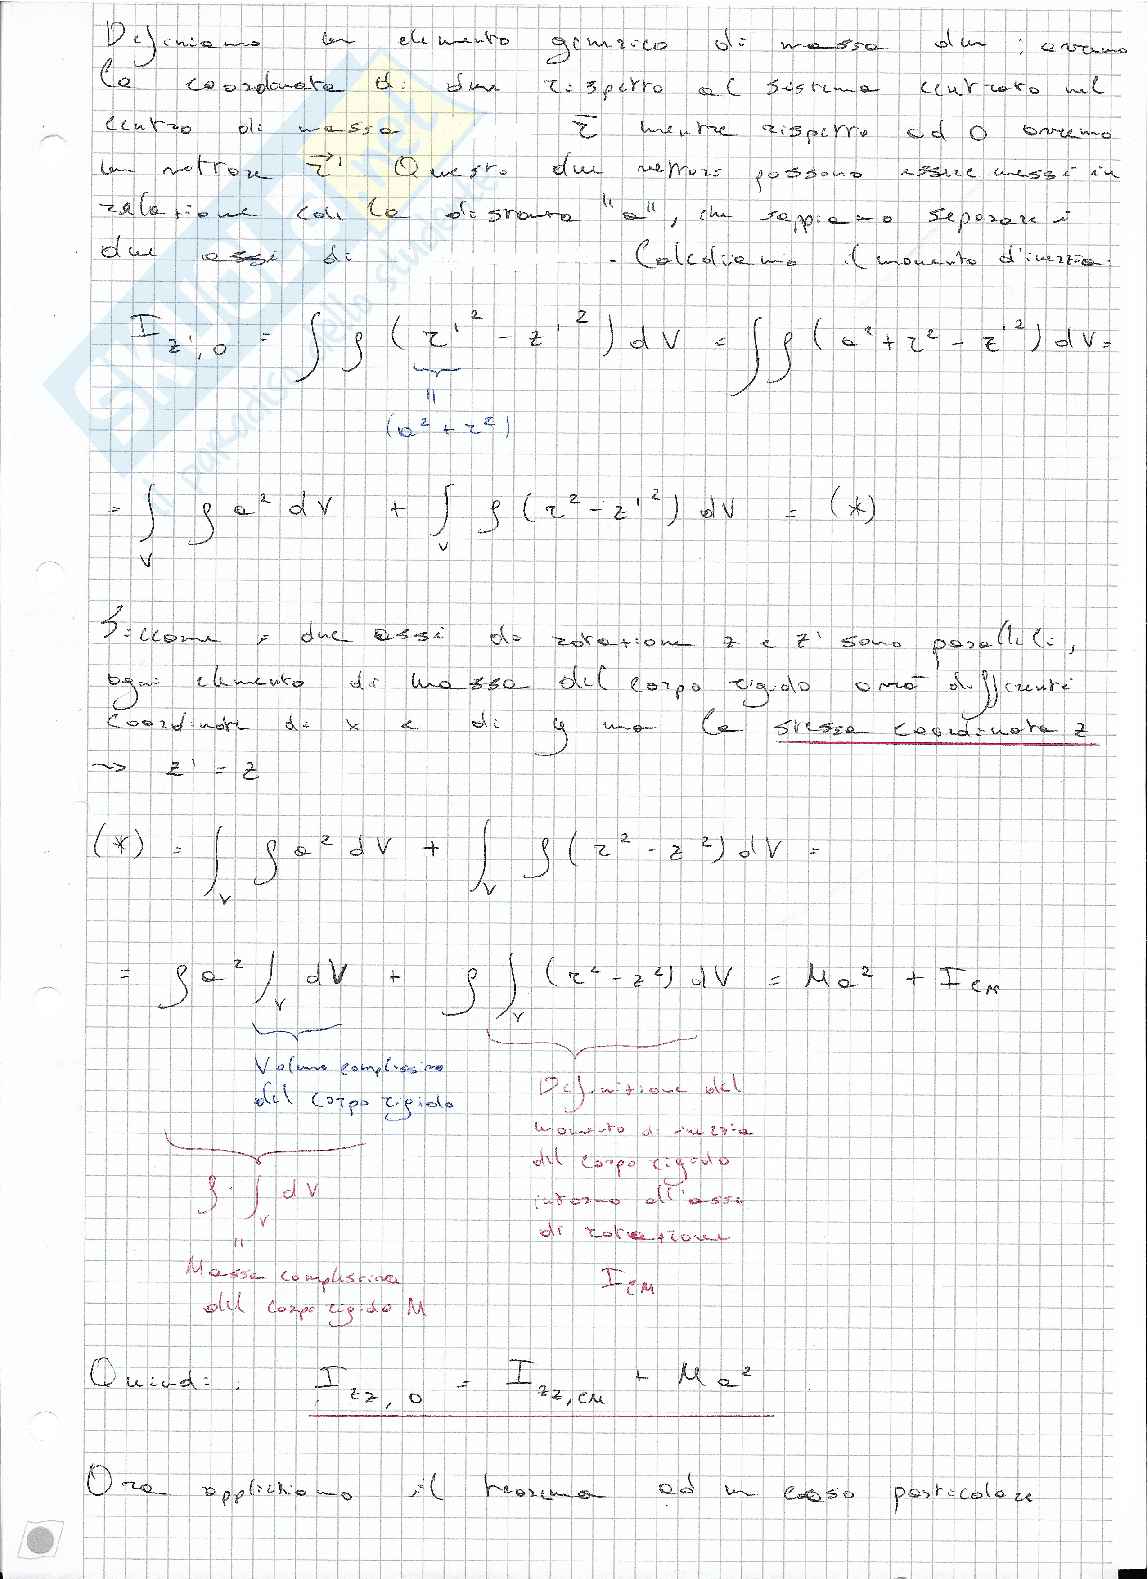 Definiamo un elemento generico di massa dm: avremo
le coordinate di dm rispetto al sistema centrato nel
centro di massa r̅ mentre rispetto ad O avremo
un vettore r⃗' Questo due vettori possono essere messi in
relazione con la distanza "a", che sappiamo separare i
due assi di . Calcoliamo il momento d'inerzia:
I z',O = ∫ρ(r'² - z'²)dV = ∫ρ(a² + r² - z'²)dV =
"
(a² + r²)
= ∫V ρ a² dV + ∫V ρ(r² - z'²) dV = (*)
Siccome i due assi di rotazione z e z' sono paralleli,
ogni elemento di massa del corpo rigido avrà differenti
coordinate di x e di y ma la stessa coordinata z
~> z' = z
(*) = ∫V ρ a² dV + ∫V ρ(r² - z²) dV =
= ρa² ∫V dV + ρ ∫V (r² - z²) dV = Ma² + I CM
Volume complessivo
del corpo rigido
Definizione del
momento di inerzia
del corpo rigido
intorno all'asse
di rotazione
I CM
ρ · ∫V dV
"
Massa complessiva
del corpo rigido M
Quindi: I zz,O = I zz,CM + Ma²
Ora applichiamo il teorema ad un caso particolare
SKUOLA.net
il paradiso dello studente